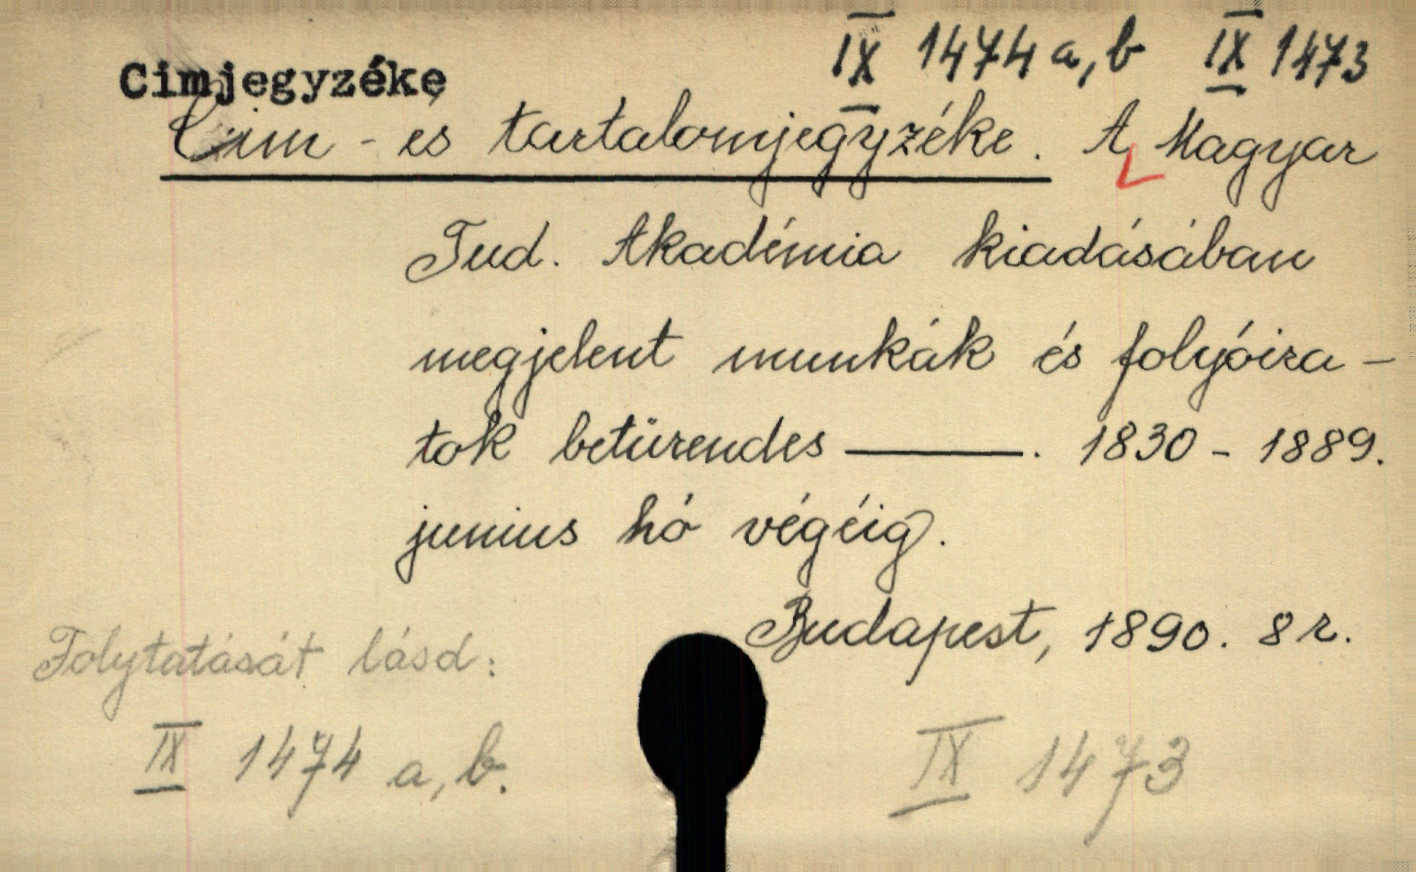 IX 1474 a, b IX 1473
Cimjegyzéke
Cim - és tartalomjegyzéke. A Magyar
Tud. Akadémia kiadásában
megjelent munkák és folyóira -
tok betürendes ———. 1830 - 1889.
junius hó végéig.
Budapest, 1890. 8 r.
Folytatását lásd:
IX 1474 a, b.
IX 1473